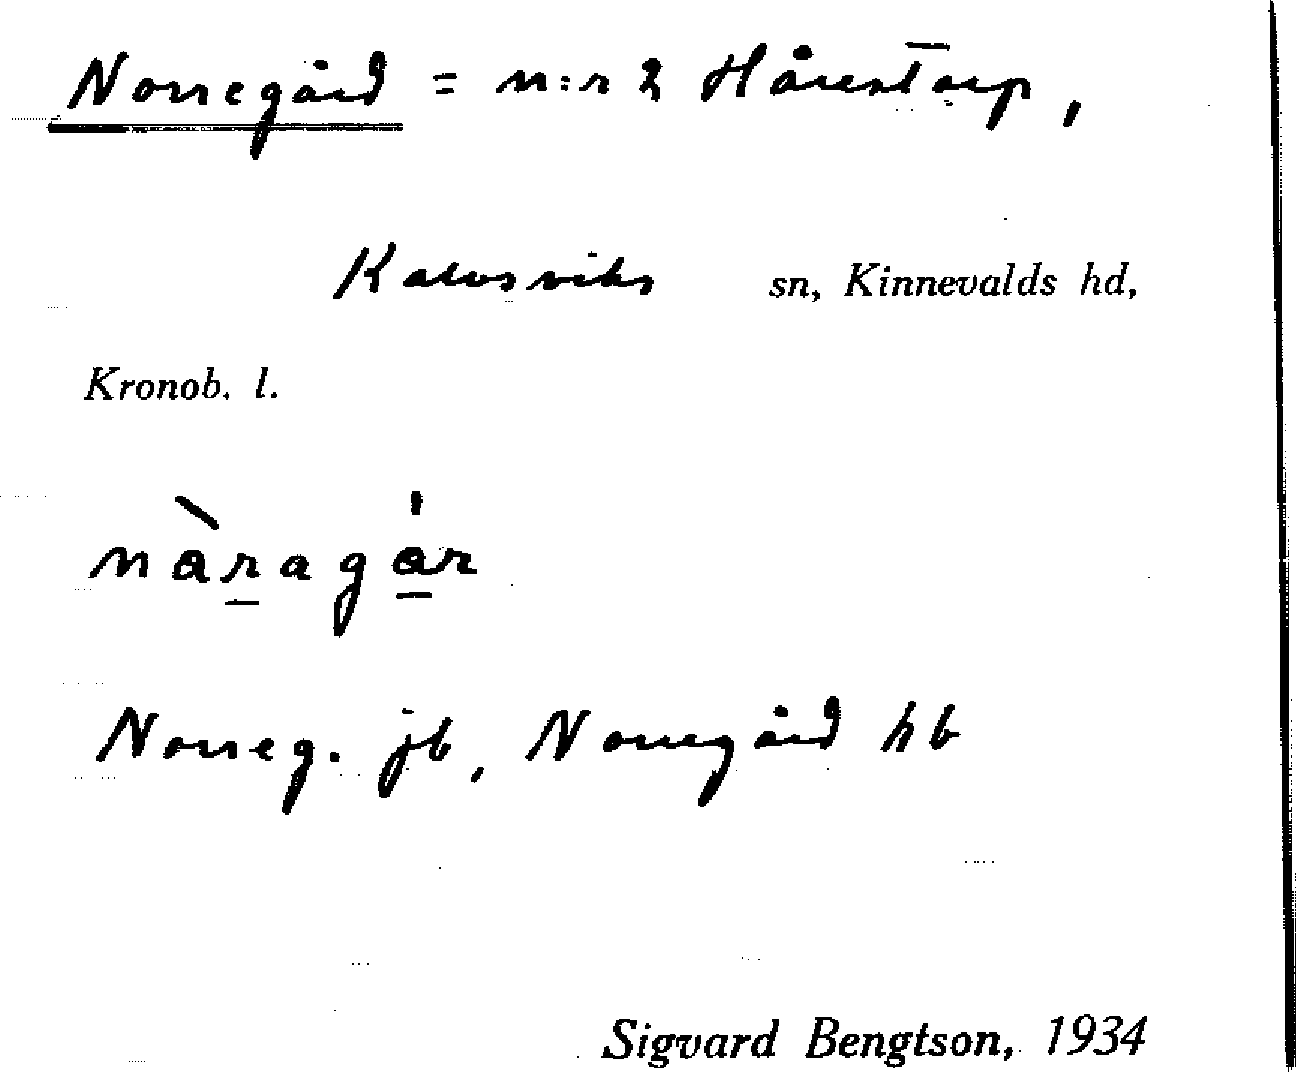 Norregård = n:r 2 Hårestorp,
Kalvsviks sn, Kinnevalds hd,
Kronob. l.
nàragár
Norreg. jb, Norregård hb
Sigvard Bengtson, 1934